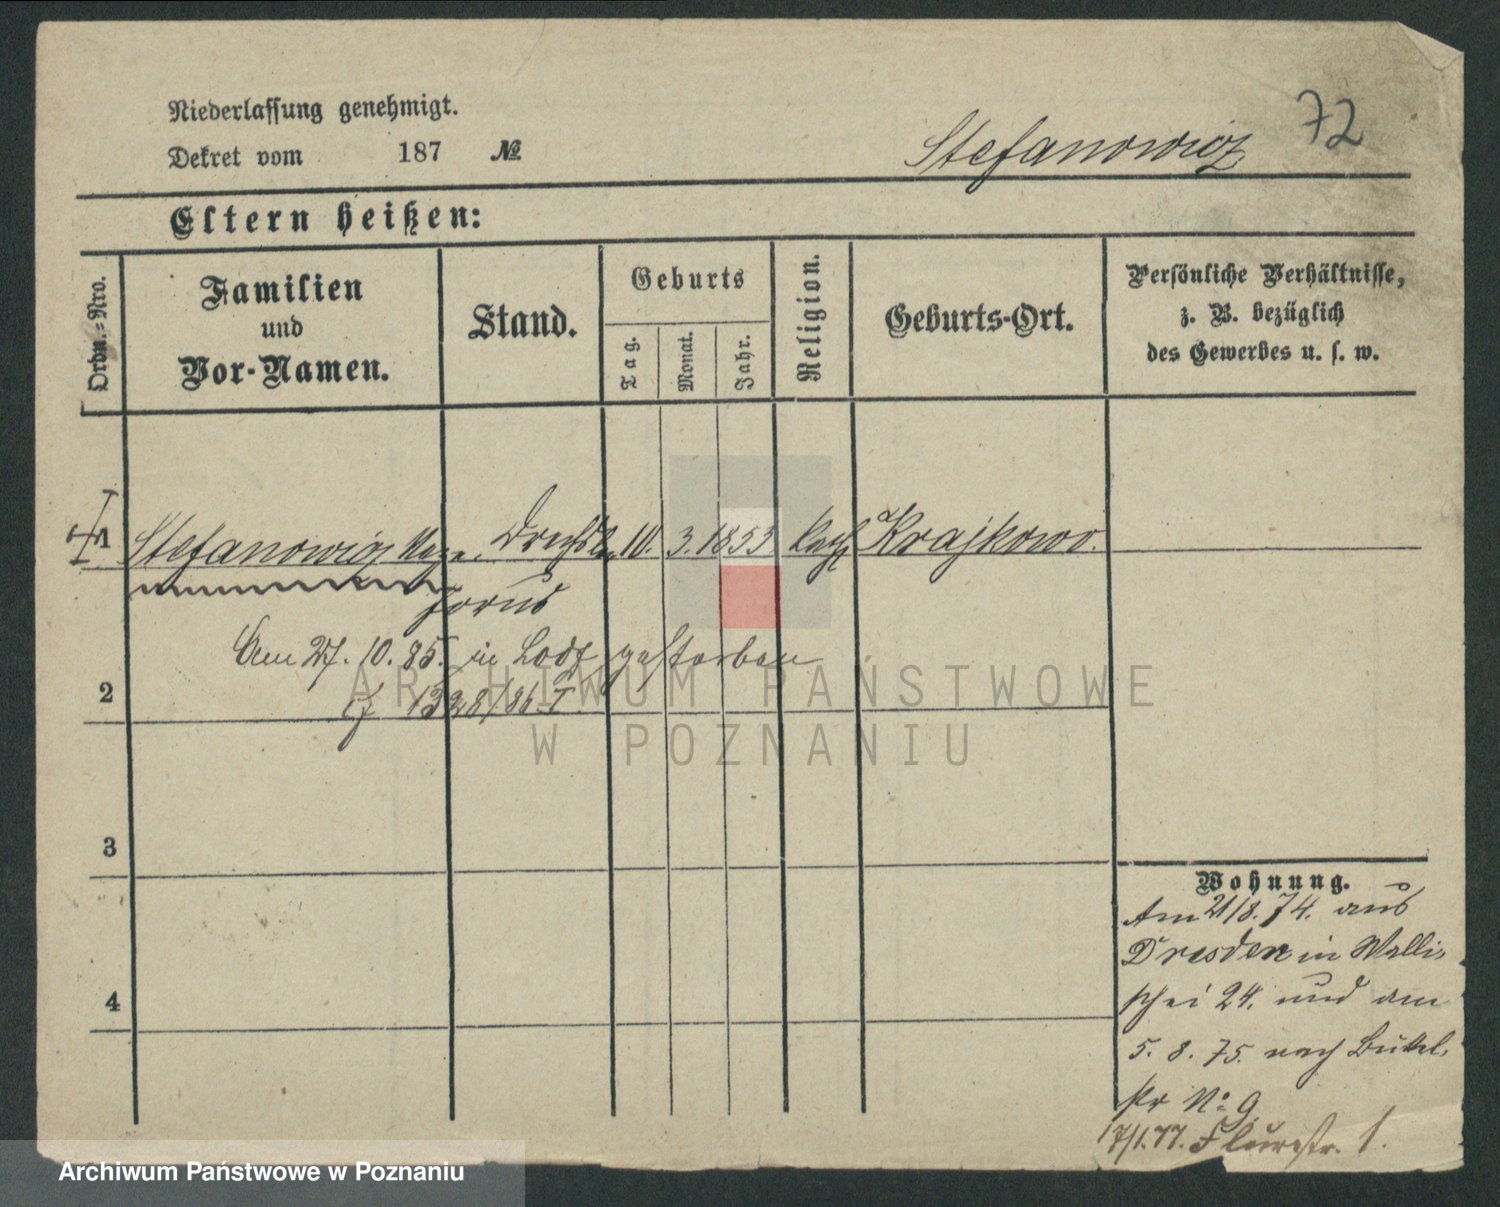 Niederlassung genehmigt.
Dekret vom 187 №
Stefanowicz 72
Eltern heißen:
Ordn.=Nro.
Familien
und
Vor-Namen.
Stand.
Geburts
Tag.
Monat.
Jahr.
Religion.
Geburts-Ort.
Persönliche Verhältnisse,
z. B. bezüglich
des Gewerbes u. s. w.
1 Stefanowicz 10. 3. 1853 kath Krajkowo.
Am 27. 10. 85. in Lodz gestorben
2
1328/86 I
3
4
Wohnung.
Am 21/8. 74. aus
Dresden in Walli-
schei 24. und am
5. 8. 75. nach Büttel-
str No 9
17/1.77. Flurstr. 1.
ARCHIWUM PAŃSTWOWE
W POZNANIU
Archiwum Państwowe w Poznaniu